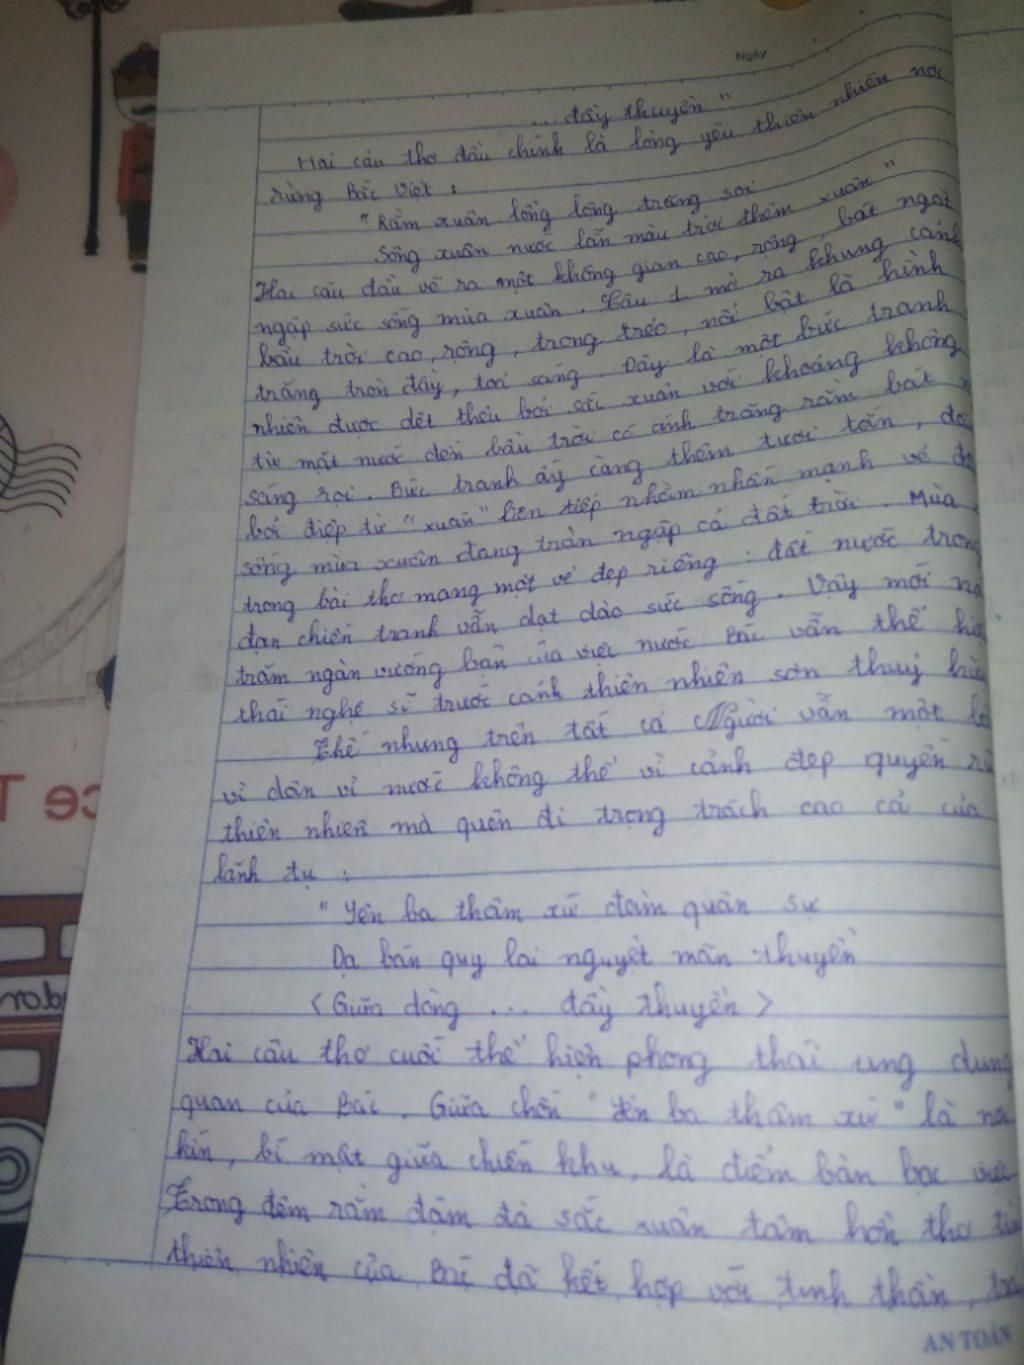 Ngày
... đầy thuyền "
Hai câu thơ đầu chính là lòng yêu thiên nhiên nơi
rừng Bắc Việt :
" Rằm xuân lồng lộng trăng soi
Sông xuân nước lẫn màu trời thêm xuân "
Hai câu đầu vẽ ra một không gian cao, rộng, bát ngát
ngập sức sống mùa xuân . Câu 1 mở ra khung cảnh
bầu trời cao, rộng, trong trẻo, nổi bật là hình
trăng tròn đầy, toả sáng . Đây là một bức tranh
nhiên được dệt thêu bởi sắc xuân với khoảng không
từ mặt nước đến bầu trời có ánh trăng rằm bát
sáng rọi . Bức tranh ấy càng thêm tươi tắn ,
bởi điệp từ " xuân " liên tiếp nhằm nhấn mạnh vẻ
sống mùa xuân đang tràn ngập cả đất trời . Mùa
trong bài thơ mang một vẻ đẹp riêng : đất nước trong
đạn chiến tranh vẫn dạt dào sức sống . Vậy mới
trăm ngàn vướng bận của việc nước Bác vẫn thể
thái nghệ sĩ trước cảnh thiên nhiên sơn thuỷ
Thế nhưng trên tất cả Người vẫn một
vì dân vì nước không thể vì cảnh đẹp quyến
thiên nhiên mà quên đi trọng trách cao cả của
lãnh tụ :
" Yên ba thâm xứ đàm quân sự
Dạ bán quy lai nguyệt mãn thuyền
< Giữa dòng ... đầy thuyền >
Hai câu thơ cuối thể hiện phong thái ung dung
quan của Bác . Giữa chốn " Yên ba thâm xứ " là
kín, bí mật giữa chiến khu, là điểm bàn bạc việc
Trong đêm rằm đậm đà sắc xuân tâm hồn thơ
thiên nhiên của Bác đã kết hợp với tinh thần ,
AN TOÀN